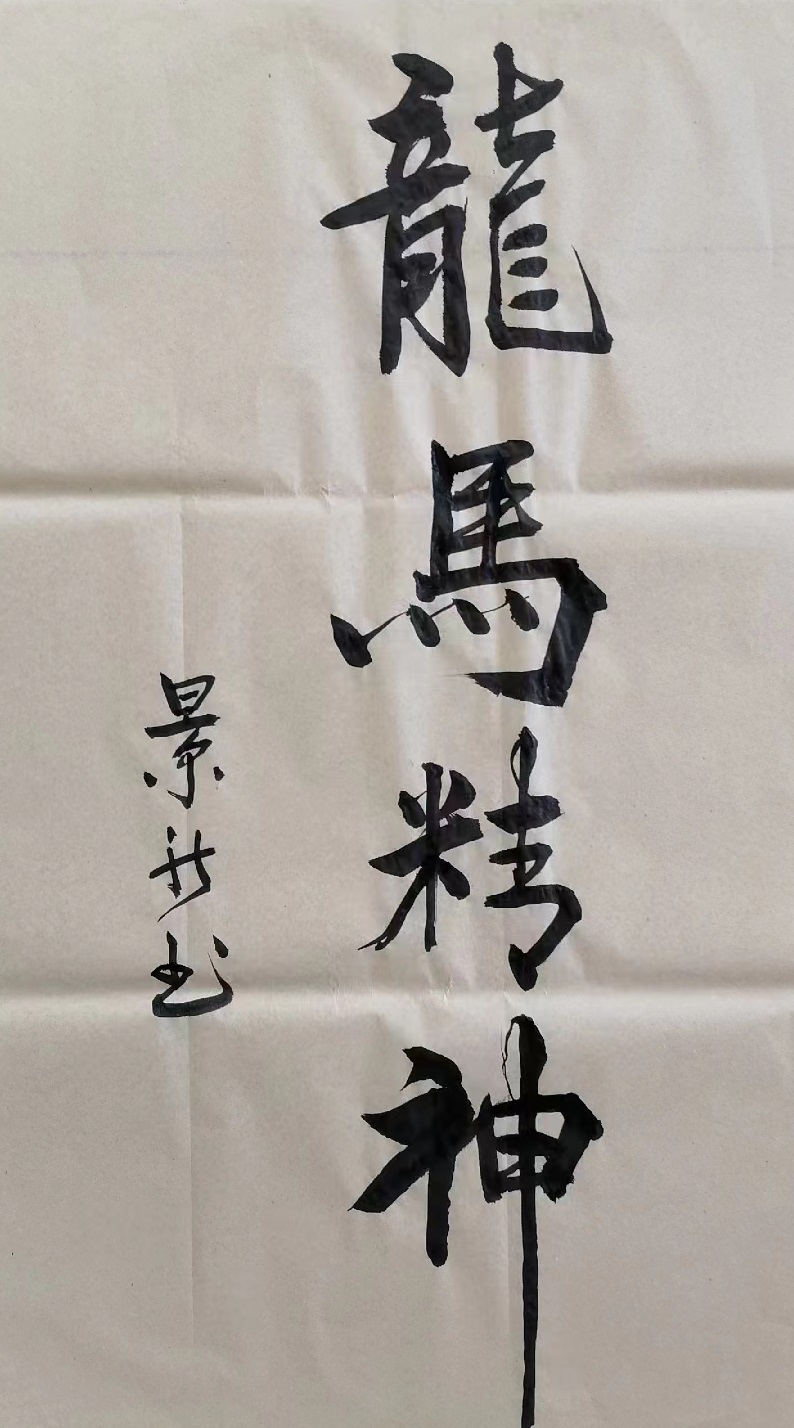 龍馬精神
景新书